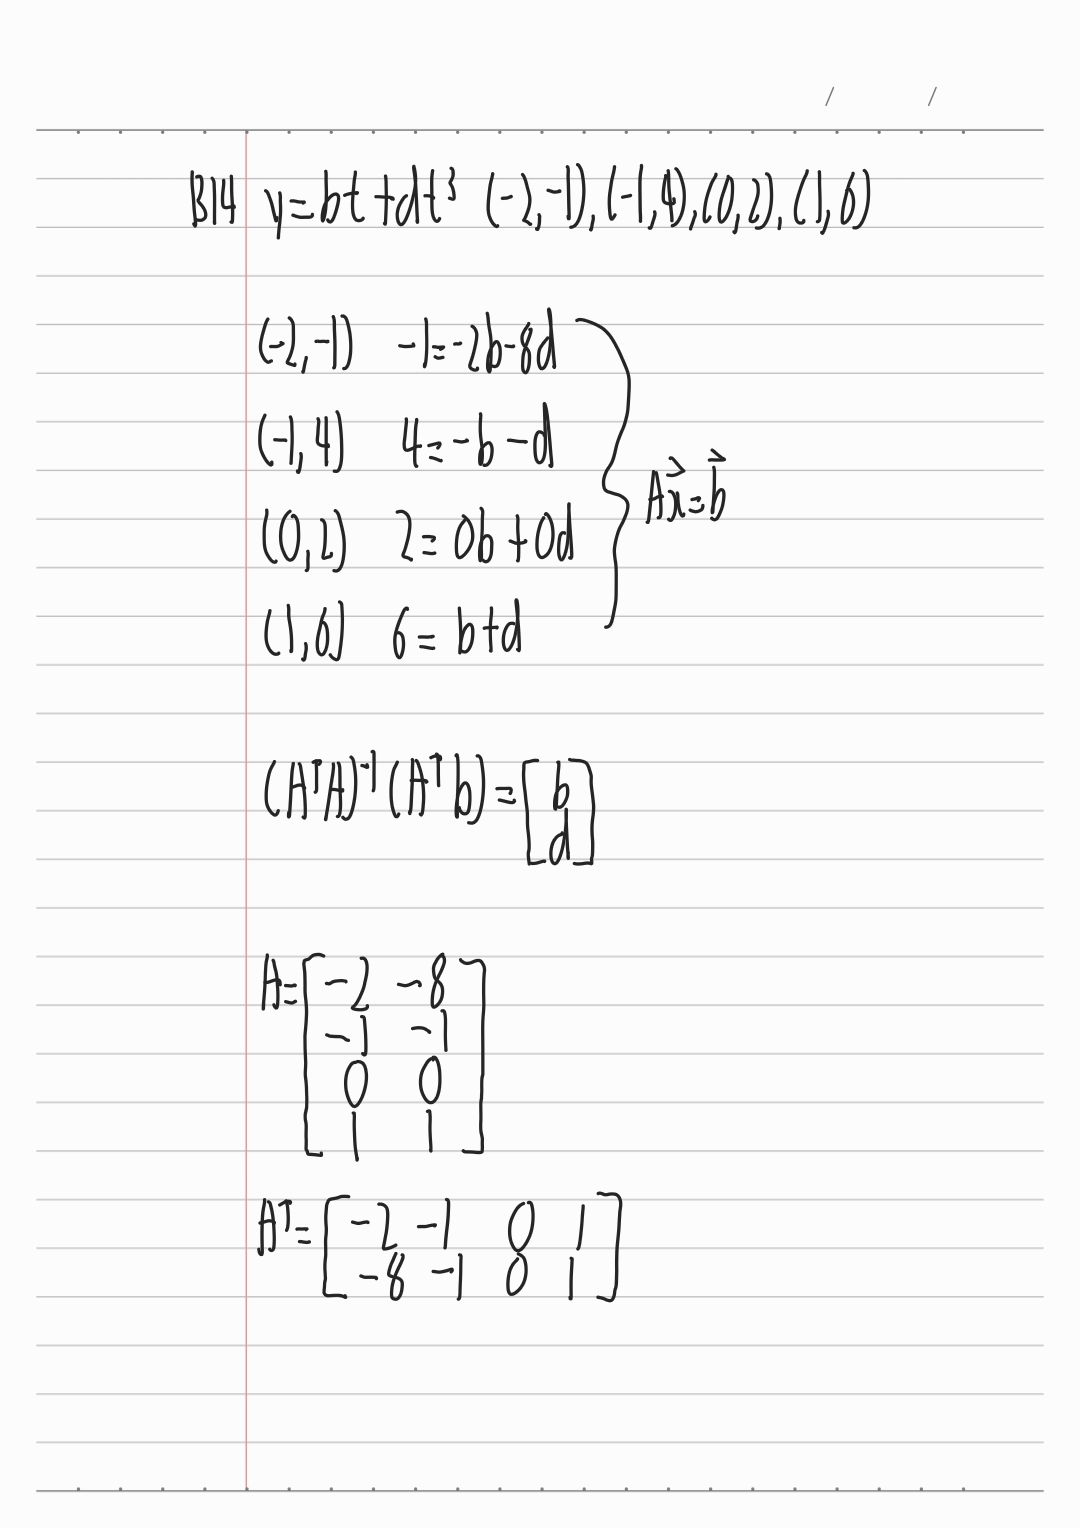 B14 y = bt + dt³ (-2,-1), (-1,4), (0,2), (1,6)
(-2,-1) -1 = -2b-8d
(-1,4) 4 = -b-d
(0,2) 2 = 0b+0d
(1,6) 6 = b+d
Ax⃗ = b⃗
(AᵀA)⁻¹(Aᵀb) = [b
d]
A = [-2 -8
-1 -1
0 0
1 1]
Aᵀ = [-2 -1 0 1
-8 -1 0 1]